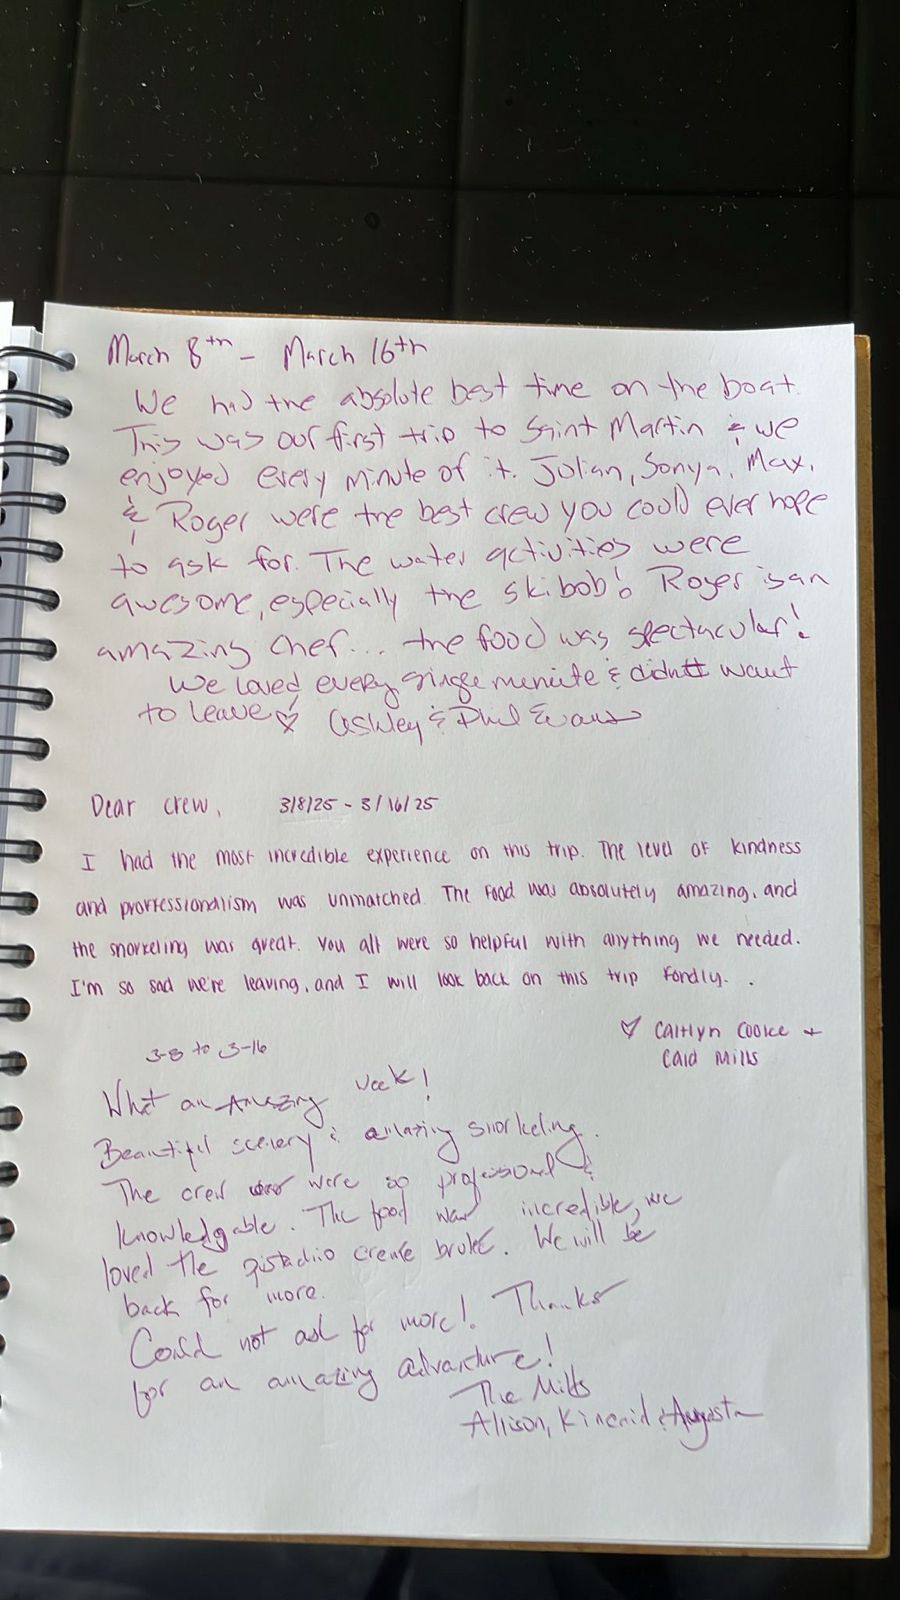 March 8th - March 16th
We had the absolute best time on the boat.
This was our first trip to Saint Martin & we
enjoyed every minute of it. Julian, Sonya, Max,
& Roger were the best crew you could ever hope
to ask for. The water activities were
awesome, especially the skibob! Roger is an
amazing chef... the food was spectacular!
We loved every single meniute & didn't want
to leave ♡ Ashley & Phil Evans
Dear crew, 3/8/25 - 3/16/25
I had the most incredible experience on this trip. The level of kindness
and proffessionalism was unmatched. The food was absolutely amazing, and
the snorkeling was great. You all were so helpful with anything we needed.
I'm so sad we're leaving, and I will look back on this trip fondly.
♡ Caitlyn Cooke +
Caid Mills
3-8 to 3-16
What an Amazing week!
Beautiful scenery & amazing snorkeling.
The crew were so professional &
knowledgable. The food was incredible, we
loved the pistachio creme brule. We will be
back for more.
Could not ask for more! Thanks
for an amazing advanture!
The Mills
Allison, Kincaid & Augusta